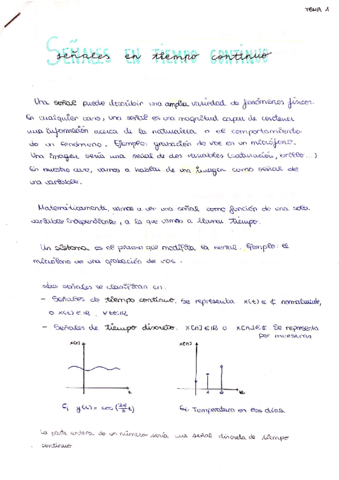 TEMA 1
SEÑALES EN TIEMPO CONTINUO
señales en tiempo continuo
Una señal puede describir una amplia variedad de fenómenos físicos.
En cualquier caso, una señal es una magnitud capaz de contener
una información acerca de la naturaleza o el comportamiento
de un fenómeno. Ejemplo: grabación de voz en un micrófono.
Una imagen sería una señal de dos variables (saturación, brillo...)
En nuestro caso, vamos a hablar de una imagen como señal de
una variable.
Matemáticamente, vamos a ver una señal como función de una sola
variable independiente, a la que vamos a llamar tiempo.
Un sistema es el proceso que modifica la señal. Ejemplo: el
micrófono en una grabación de voz.
señales se clasifican en:
- Señales de tiempo continuo. Se representa x(t) ∈ ℂ normalmente,
o x(t) ∈ ℝ, ∀ t ∈ ℝ
- Señales de tiempo discreto. x[n] ∈ ℝ o x[n] ∈ ℂ Se representa
por muestras
x[n]
Ej: Temperatura en los días.
La parte entera de un número sería una señal discreta de tiempo
continuo